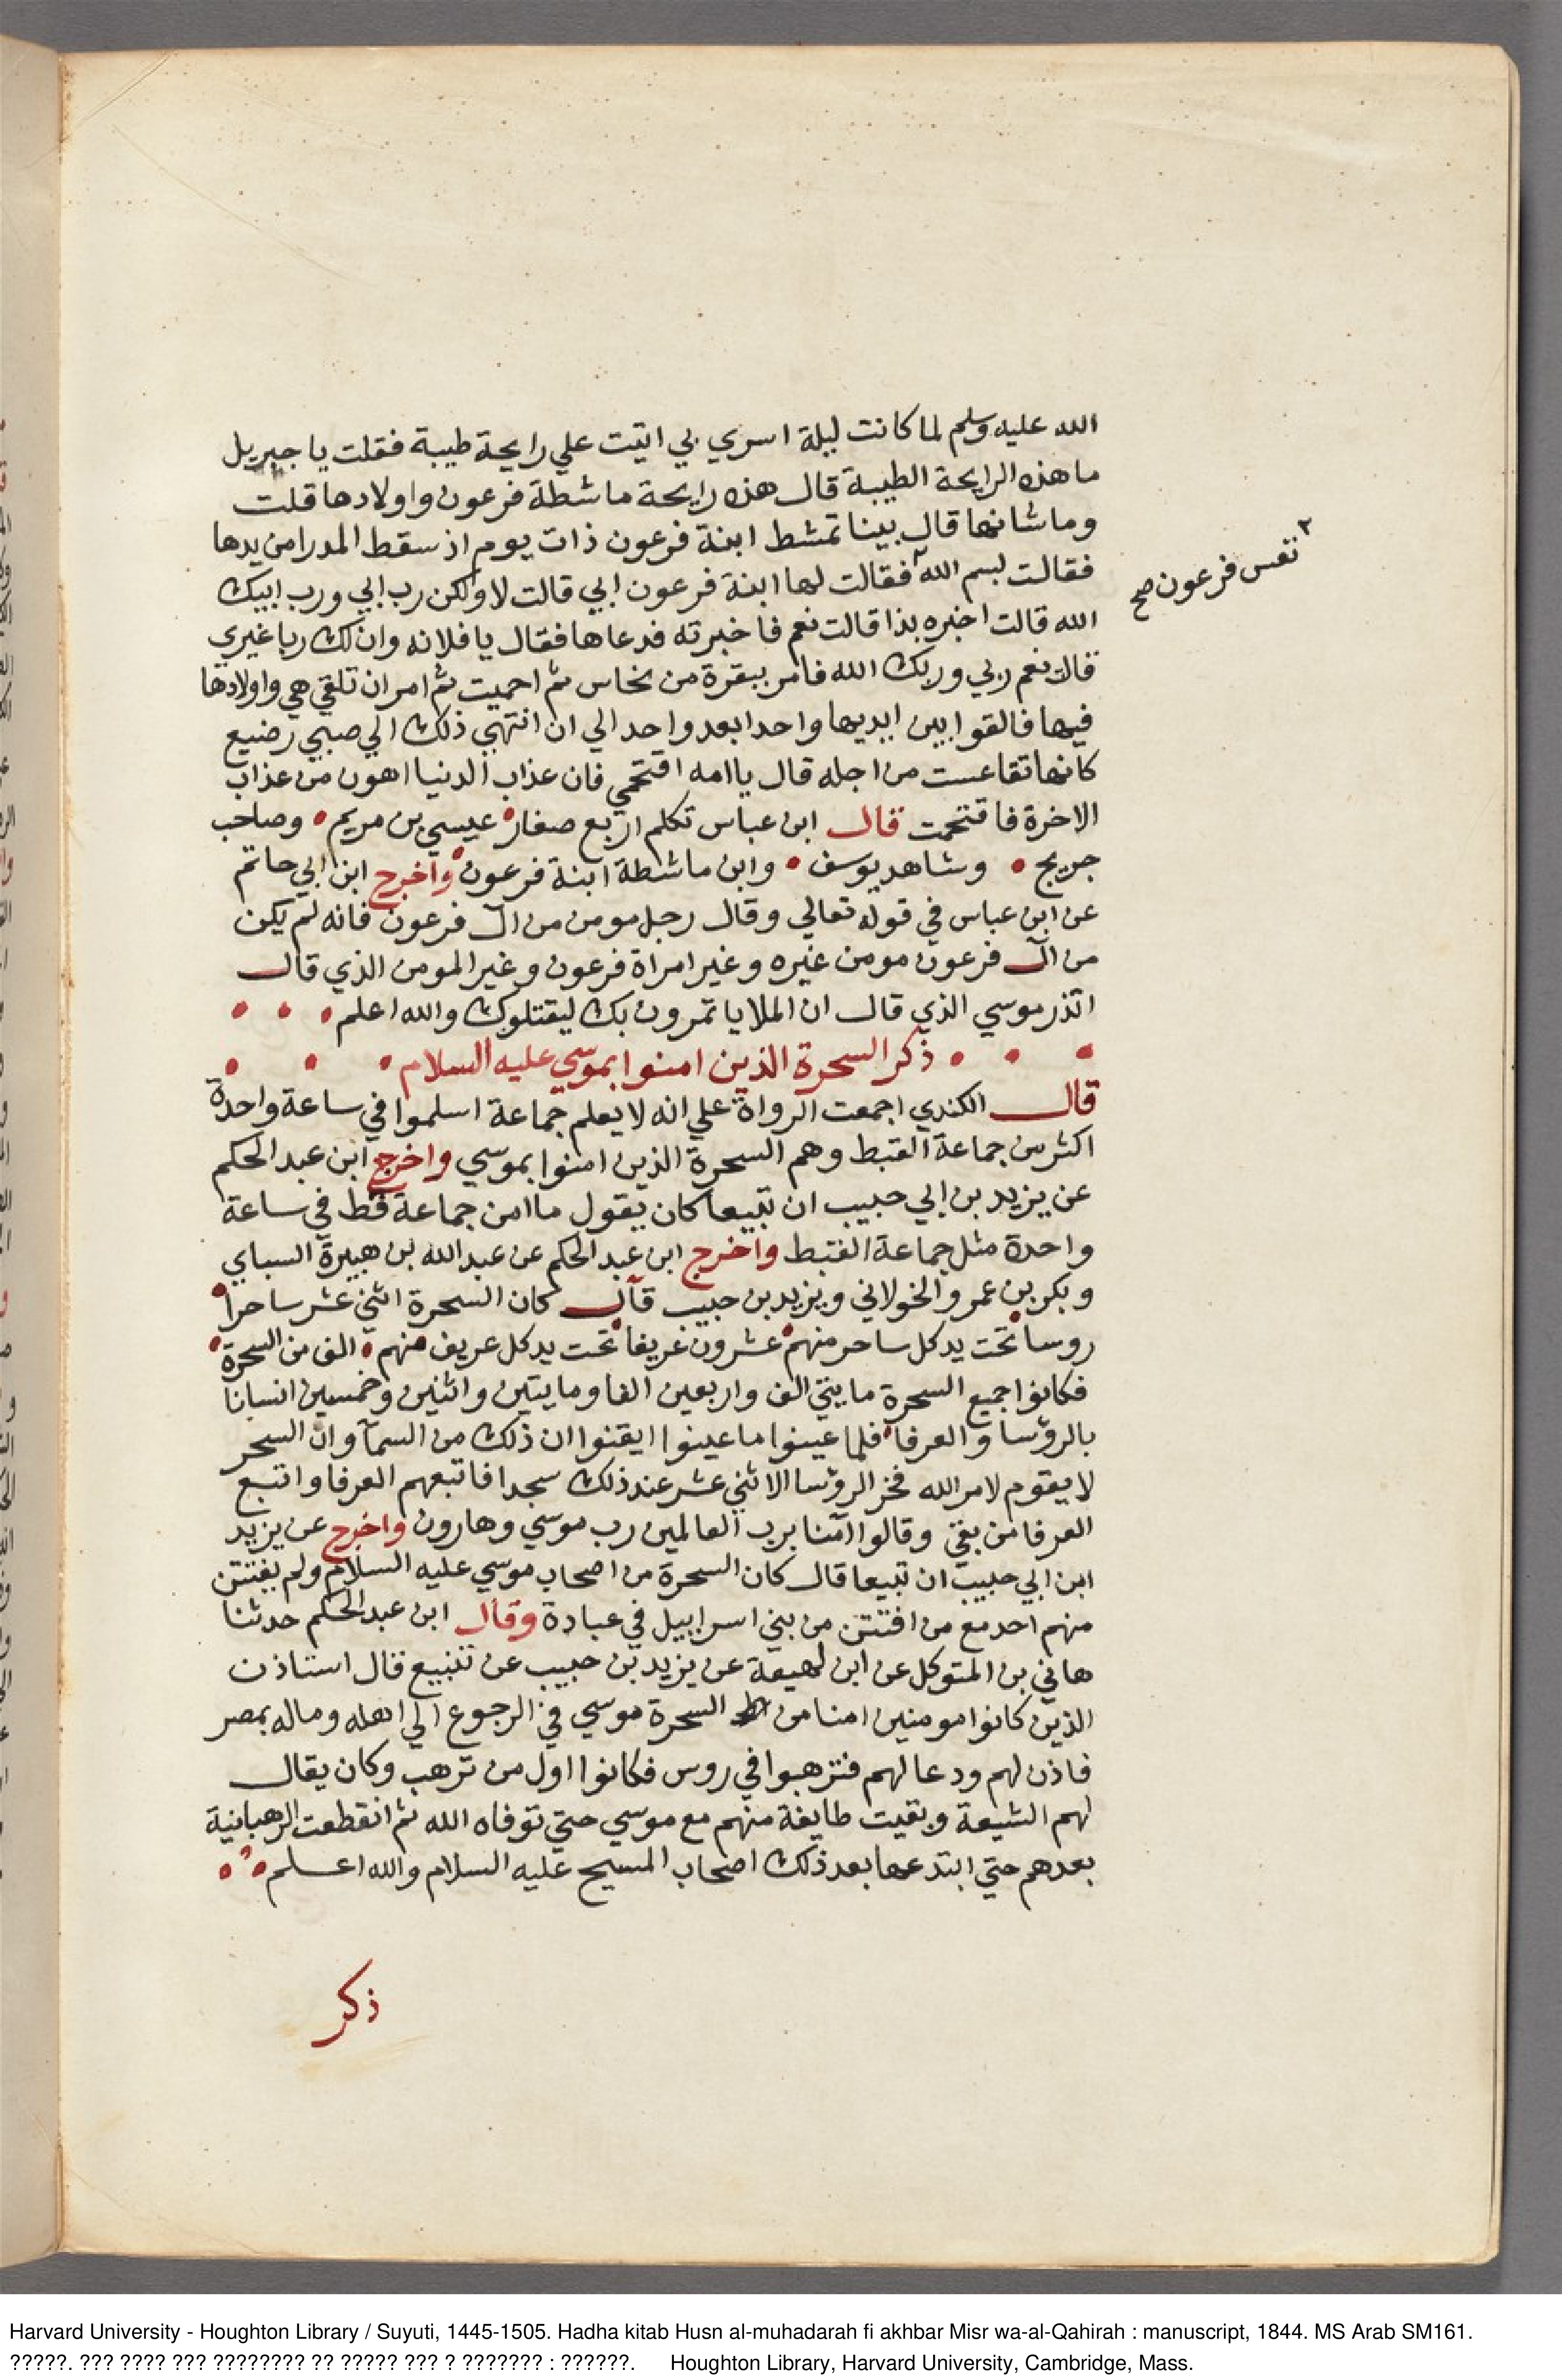 الله عليه وسلم لما كانت ليلة اسري بي اتيت علي رايحة طيبة فقلت يا جبريل
ما هذه الرايحة الطيبة قال هذه رايحة ماشطة فرعون واولادها قلت
وما شانها قال بينا تمشط ابنة فرعون ذات يوم اذ سقط المدرا من يدها
فقالت بسم الله٢ فقالت لها ابنة فرعون ابي قالت لا ولكن رب ابي ورب ابيك
٢ تعس فرعون صح
الله قالت اخبره بذا قالت نعم فاخبرته فدعاها فقال يا فلانه وان لك ربا غيري
قالت نعم ربي وربك الله فامر ببقرة من نحاس ثم احميت ثم امر ان تلقي هي واولادها
فيها فالقوا بين ايديها واحدا بعد واحد الي ان انتهي ذلك الي صبي رضيع
كانها تقاعست من اجله قال يا امه اقتحمي فان عذاب الدنيا اهون من عذاب
الاخرة فاقتحمت قال ابن عباس تكلم اربع صغار عيسي بن مريم • وصاحب
جريج • وشاهد يوسف • وابن ماشطة ابنة فرعون • واخرج ابن ابي حاتم
عن ابن عباس في قوله تعالي وقال رجل مومن من ال فرعون فانه لم يكن
من ال فرعون مومن غيره وغير امراة فرعون وغير المومن الذي قال
انذر موسي الذي قال ان الملا ياتمرون بك ليقتلوك والله اعلم • • •
• • • ذكر السحرة الذين امنوا بموسي عليه السلام • • •
قال الكندي اجمعت الرواة علي انه لا يعلم جماعة اسلموا في ساعة واحدة
اكثر من جماعة القبط وهم السحرة الذين امنوا بموسي واخرج ابن عبد الحكم
عن يزيد بن ابي حبيب ان تبيعا كان يقول ما امن جماعة قط في ساعة
واحدة مثل جماعة القبط واخرج ابن عبد الحكم عن عبد الله بن هبيرة السباي
وبكر بن عمرو الخولاني ويزيد بن حبيب قال كان السحرة اثني عشر ساحرا •
روسا • تحت يد كل ساحر منهم • عشرون عريفا • تحت يد كل عريف منهم • الف من السحرة •
فكانوا جميع السحرة مايتي الف واربعين الفا ومايتين واثنين وخمسين انسانا
بالرؤسا والعرفا • فلما عينوا ما عينوا ايقنوا ان ذلك من السمآ وان السحر
لا يقوم لامر الله فخر الرؤسا الاثني عشر عند ذلك سجدا فاتبعهم العرفا واتبع
العرفا من بقي وقالوا آمنا برب العالمين رب موسي وهارون واخرج عن يزيد
ابن ابي حبيب ان تبيعا قال كان السحرة من اصحاب موسي عليه السلام ولم يفتتن
منهم احد مع من افتتن من بني اسراييل في عبادة وقال ابن عبد الحكم حدثنا
هاني بن المتوكل عن ابن لهيعة عن يزيد بن حبيب عن تنبيع قال استاذن
الذين كانوا مومنين امنا من السحرة موسي في الرجوع الي اهله وماله بمصر
فاذن لهم ودعا لهم فترهبوا في روس فكانوا اول من ترهب وكان يقال
لهم الشيعة وبقيت طايفة منهم مع موسي حتي توفاه الله ثم انقطعت الرهبانية
بعدهم حتي ابتدعها بعد ذلك اصحاب المسيح عليه السلام والله اعلم • • •
ذكر
Harvard University - Houghton Library / Suyuti, 1445-1505. Hadha kitab Husn al-muhadarah fi akhbar Misr wa-al-Qahirah : manuscript, 1844. MS Arab SM161.
?????. ??? ???? ??? ???????? ?? ????? ??? ? ??????? : ??????. Houghton Library, Harvard University, Cambridge, Mass.